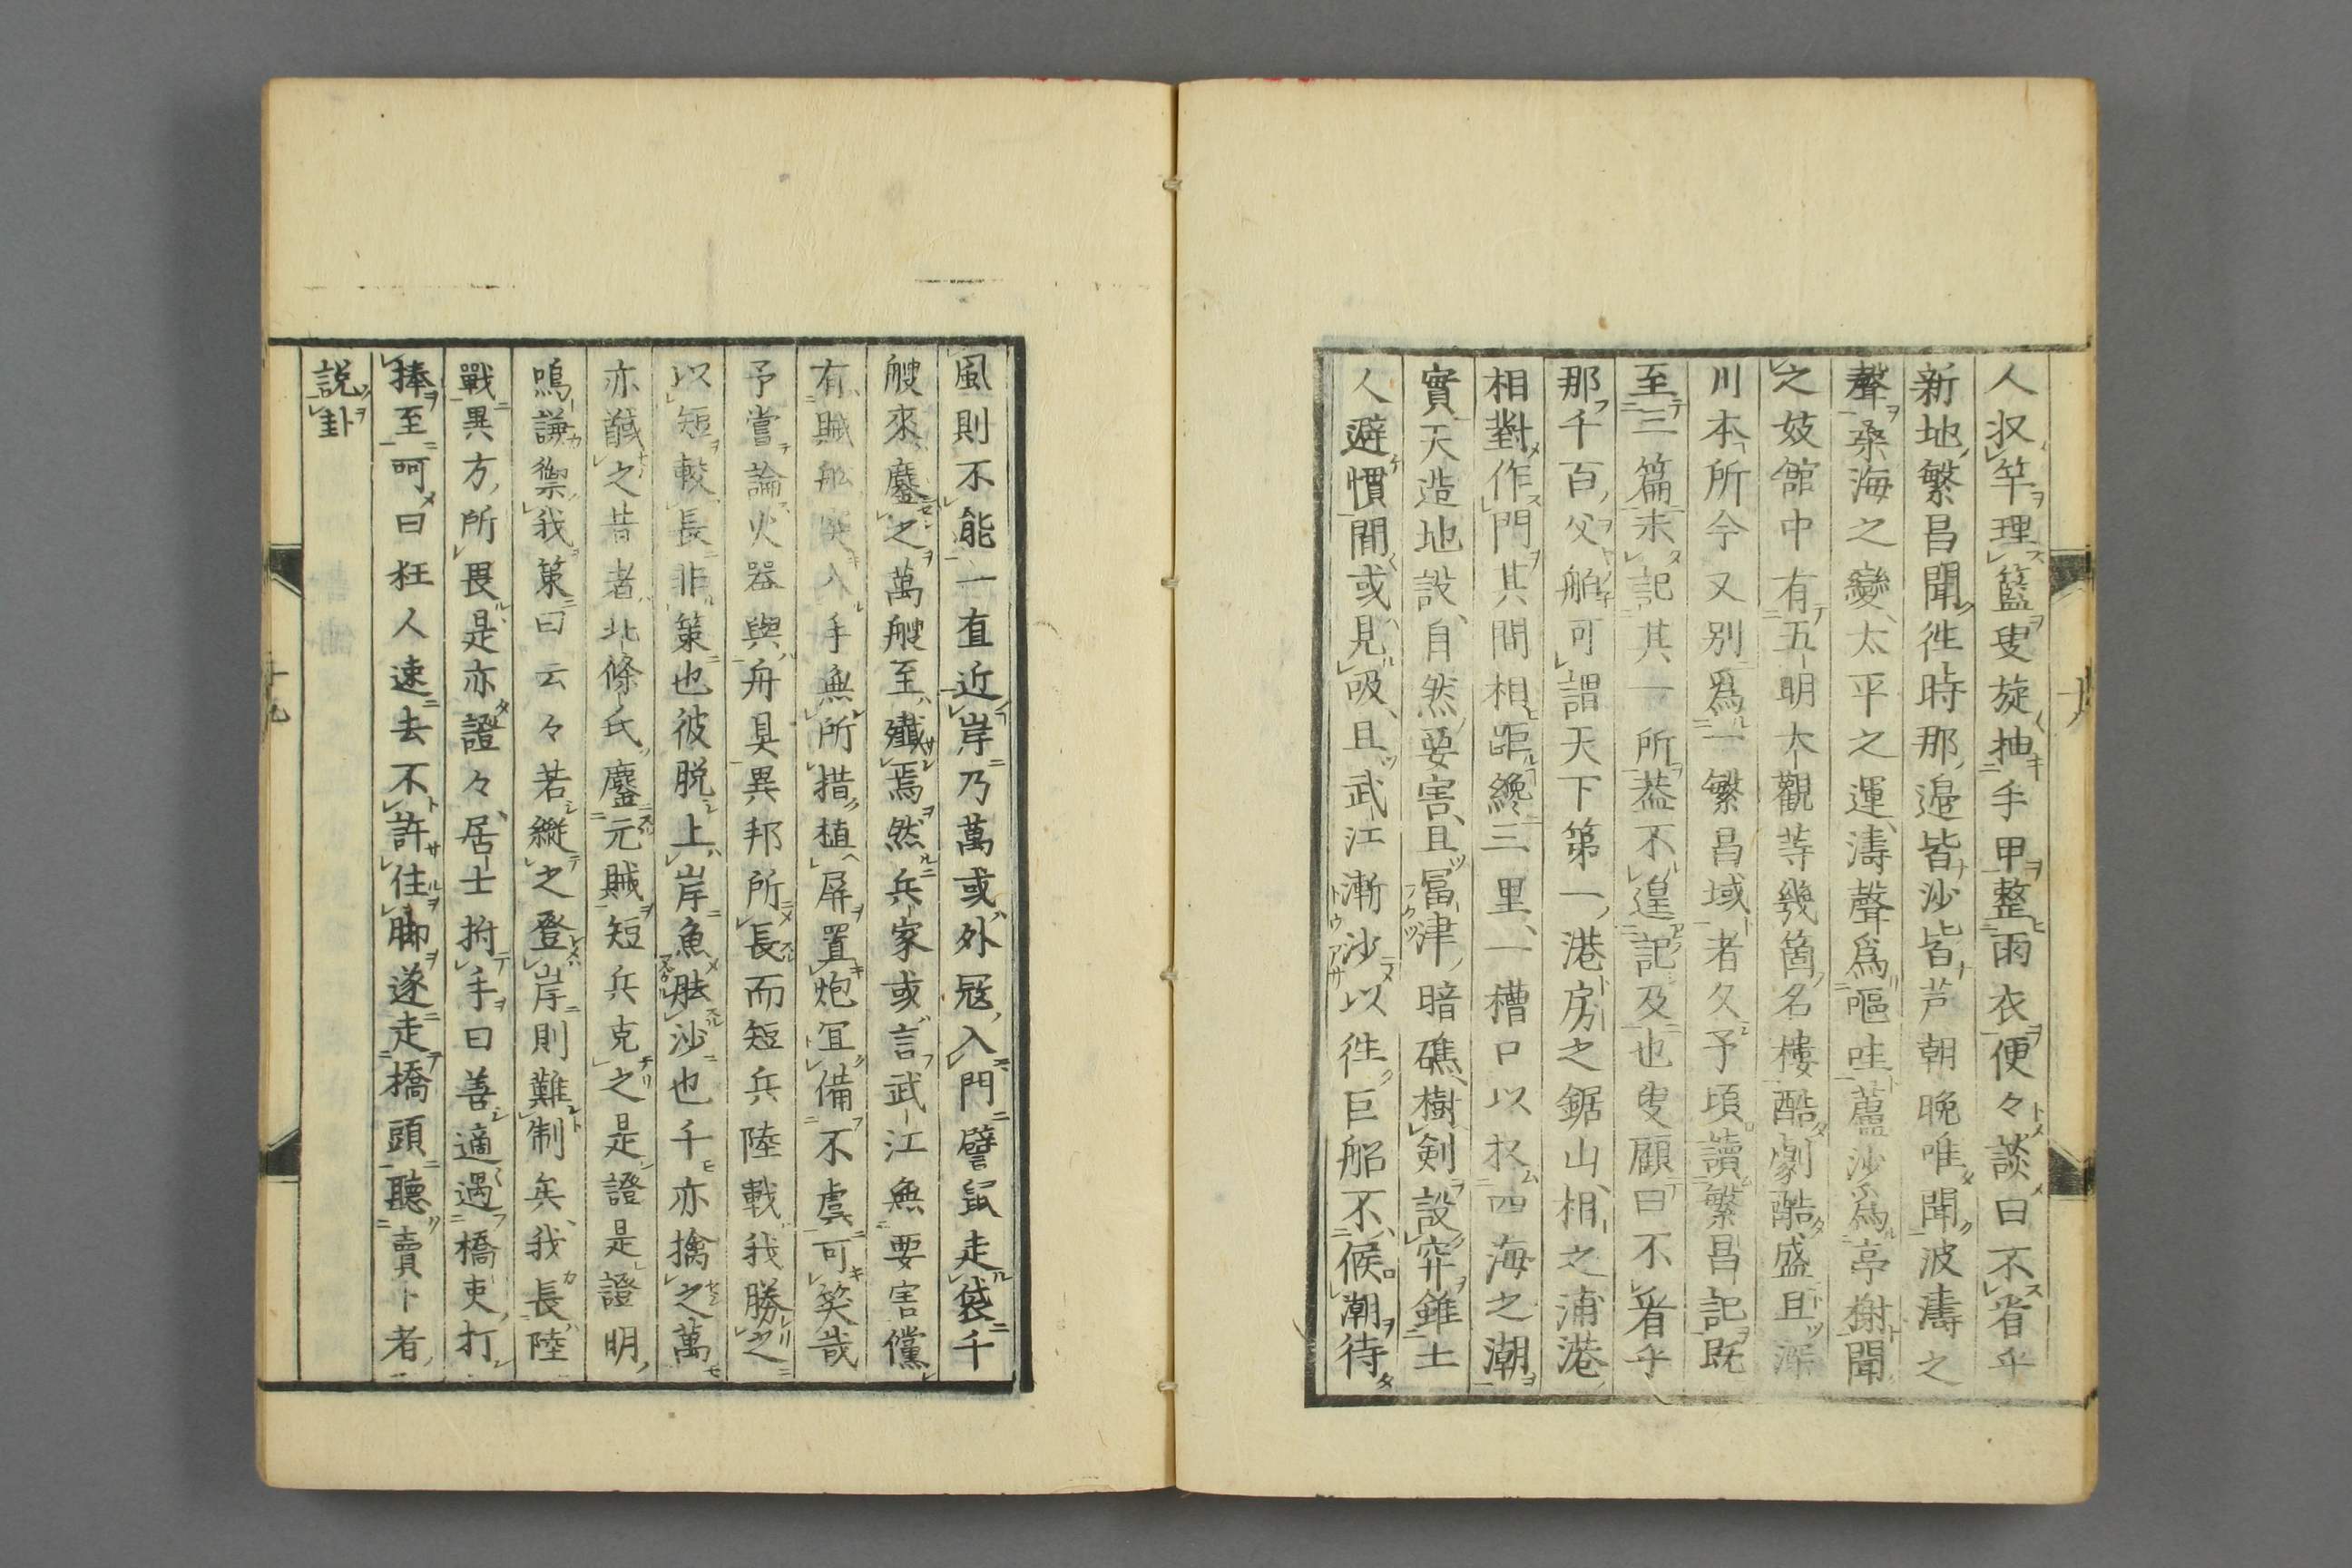 人収竿理籃叟旋抽手甲整雨衣便々談曰不省乎
新地繁昌聞徃時那邉皆沙皆芦朝晩唯聞波濤之
聲桑海之變太平之運濤聲爲嘔哇蘆沙爲亭榭聞
之妓館中有五明大觀等幾箇名樓酷劇酷盛且深
川本所今又別爲一繁昌域者久予頃讀繁昌記既
至三篇未記其一所葢不遑記及也叟顧曰不省乎
那千百父舶可謂天下第一港房之鋸山相之浦港
相對作門其間相距纔三里一槽口以収四海之潮
實天造地設自然要害且冨津暗礁樹剣設穽雖土
人避慣間或見吸且武江漸沙以徃巨船不候潮待
風則不能一直近岸乃萬或外冦入門譬鼠走袋千
艘來鏖之萬艘至殲焉然兵家或言武江無要害儻
有賊船突入手無所措植屏置炮冝備不虞可笑哉
予嘗論火器與舟具異邦所長而短兵陸戦我勝之
以短較長非策也彼脱上岸魚肤沙也千亦擒之萬
亦馘之昔者北條氏鏖元賊短兵克之是證是證明
鳴謙禦我策曰云々若縱之登岸則難制矣我長陸
戰異方所畏是亦證々居士拊手曰善適過橋吏打
捧至呵曰狂人速去不許住脚遂走橋頭聽賣卜者
説卦
十九